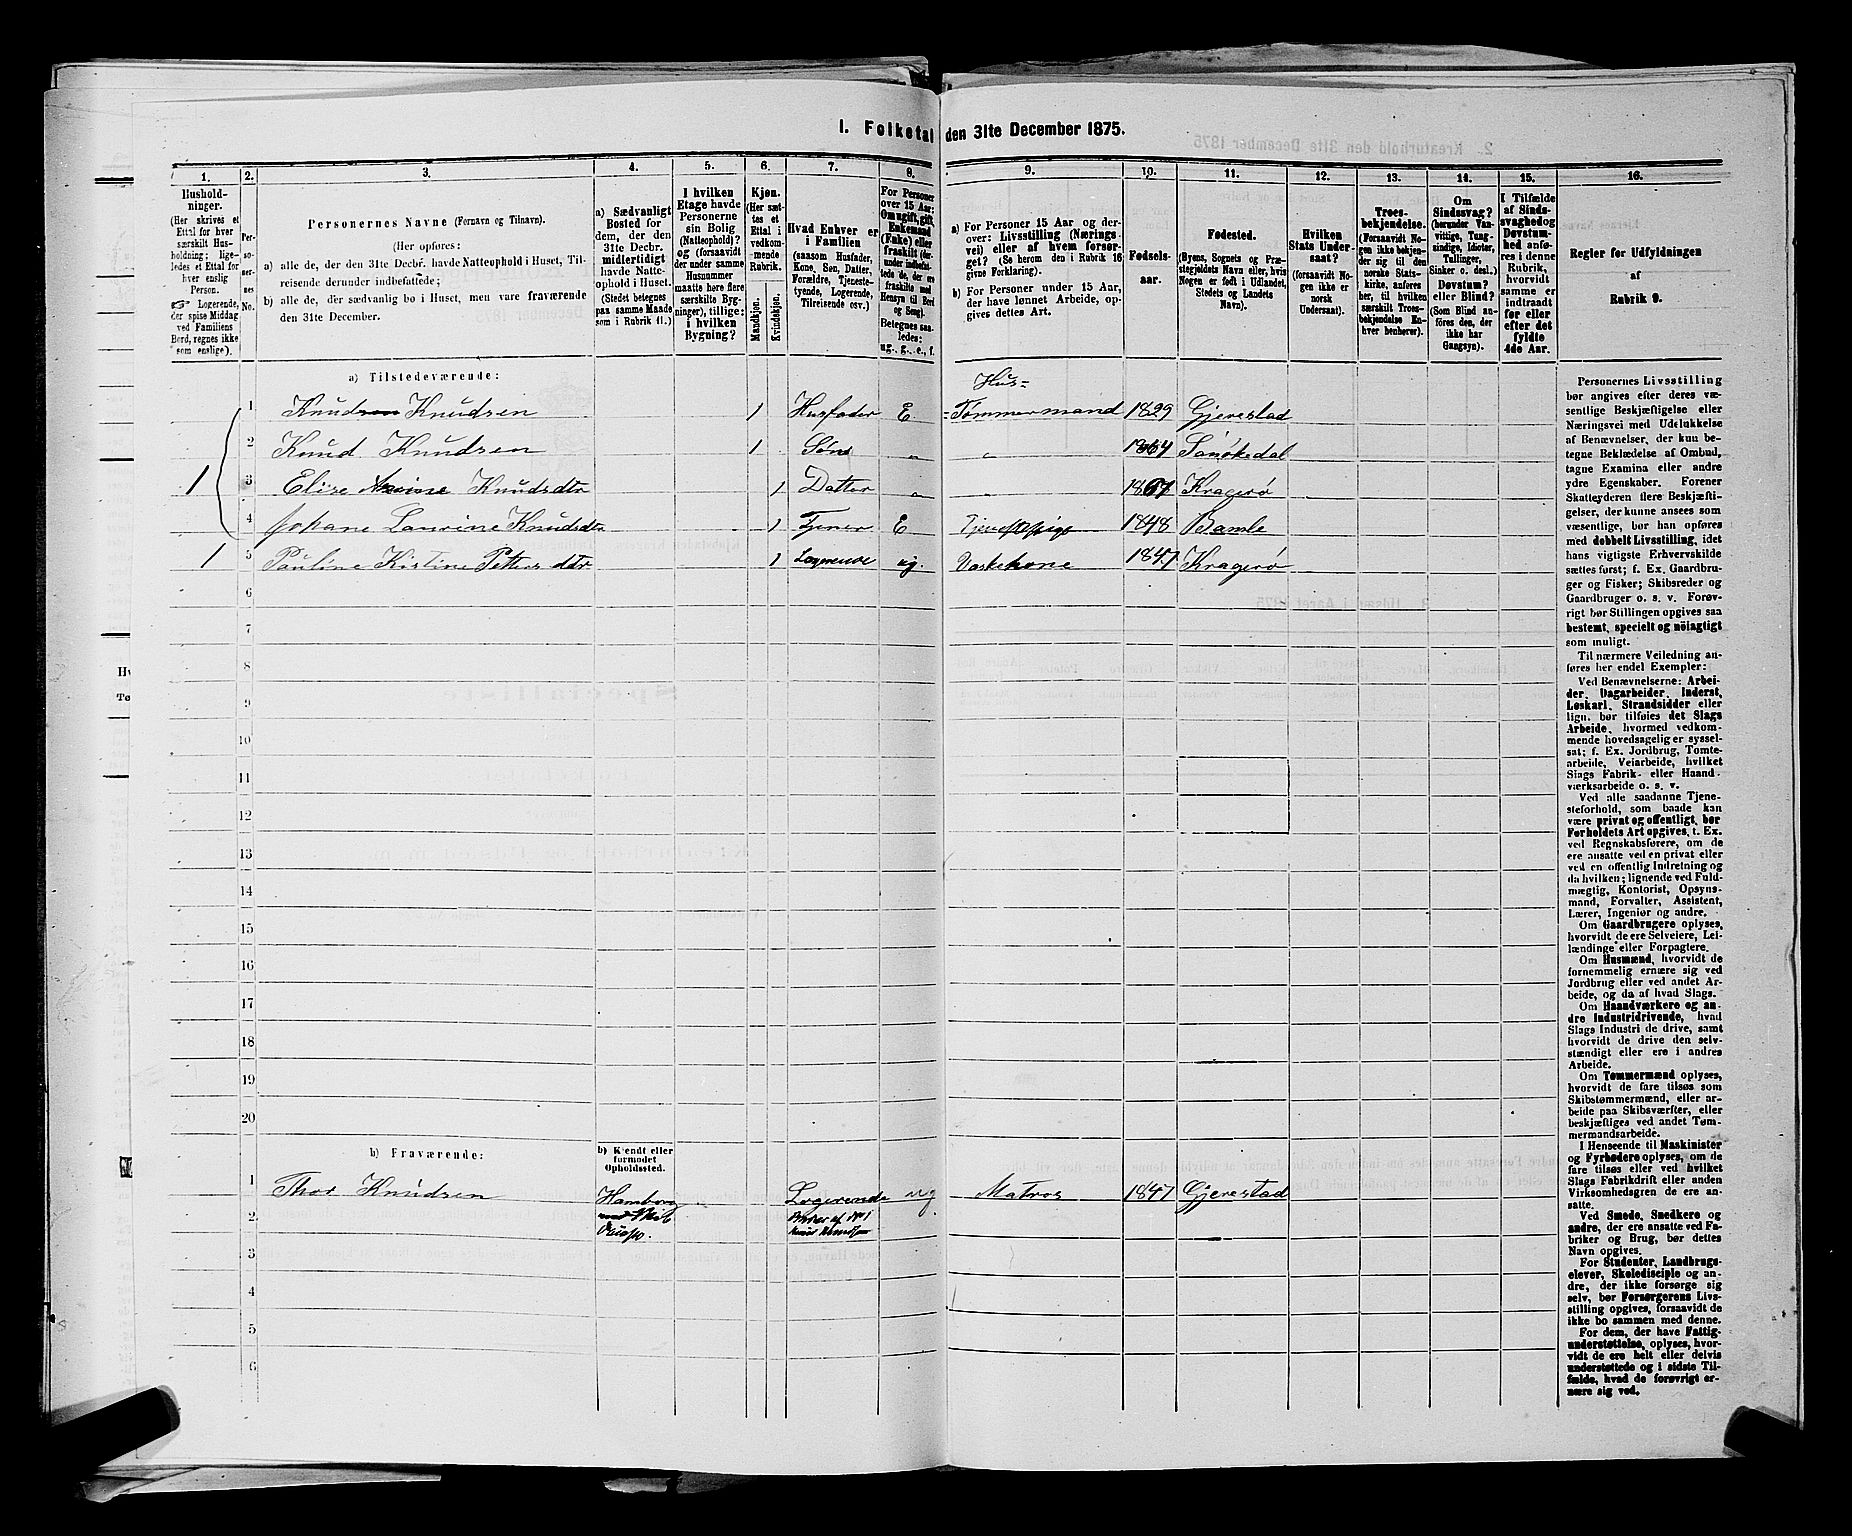 I. Folketal den 31te December 1875.
1. 2. 3. 4. 5. 6. 7. 8. 9. 10. 11. 12. 13. 14. 15. 16.
Husholdninger.
(Her skrives et Ettal for hver særskilt Husholdning; ligeledes et Ettal for hver enslig Person.
☞ Logerende, der spise Middag ved Familiens Bord, regnes ikke som enslige).
Personernes No.
Personernes Navne (Fornavn og Tilnavn).
(Her opføres:
a) alle de, der den 31te Decbr. havde Natteophold i Huset, Tilreisende derunder indbefattede;
b) alle de, der sædvanlig bo i Huset, men vare fraværende den 31te December.
a) Sædvanligt Bosted for dem, der den 31te Decbr. midlertidigt havde Natteophold i Huset.
(Stedet betegnes paa samme Maade som i Rubrik 11.)
I hvilken Etage havde Personerne sin Bolig (Natteophold)? og (forsaavidt der under samme Husnummer maatte høre flere særskilte Bygninger), tillige: i hvilken Bygning?
Kjøn.
(Her sættes et Ettal i vedkommende Rubrik.
Mandkjøn. Kvindekjøn.
Hvad Enhver er i Familien
(saasom Husfader, Kone, Søn, Datter, Forældre, Tjenestetyende, Logerende, Tilreisende osv.)
For Personer over 15 Aar: Om ugift, gift, Enkemand (Enke) eller fraskilt
Betegnes saaledes: ug., g., e., f.
a) For Personer 15 Aar og derover: Livsstilling (Næringsvei) eller af hvem forsørget? (Se herom den i Rubrik 16 givne Forklaring).
b) For Personer under 15 Aar, der have lønnet Arbeide, opgives dettes Art.
Fødselsaar.
Fødested.
(Byens, Sognets og Præstegjeldets Navn eller, hvis Nogen er født i Udlandet, Stedets og Landets Navn).
Hvilken Stats Undersaat?
(forsaavidt Nogen ikke er norsk Undersaat).
Troesbekjendelse.
(Forsaavidt Nogen ikke bekjender sig til den norske Statskirke, anføres her, til hvilken særskilt Troesbekjendelse Enhver henhører).
Om Sindssvag? (herunder Vanvittige, Tungsindige, Idioter, Tullinger, Sinker o. desl.) Døvstum? eller Blind? (Som Blind anføres den, der ikke har Gangsyn).
I Tilfælde af Sindssvaghed og Døvstumhed anføres i denne Rubrik, hvorvidt samme er indtraadt før eller efter det fyldte 4de Aar.
Regler for Udfyldningen af Rubrik 9.
a) Tilstedeværende:
Hus=
1 Knudsen Knudsen 1 Husfader E. =Tømmermand 1829 Gjerestad
2 Knud Knudsen 1 Søn „ „ 1864 Sanøkedal
1 3 Elise Knudsdtr 1 Datter „ „ 1867 Kragerø
4 Johane Laurine Knudsdtr 1 Tjener E Tjenestepige 1848 Bamle
1 5 Pauline Kistine Petters dtr 1 ug. Vaskekone 1847 Kragerø
6
7
8
9
10
11
12
13
14
15
16
17
18
19
20
b) Fraværende:
b) Kjendt eller formodet Opholdssted.
1 Thor Knudsen Hamborg „ Logerende ug Matros 1847 Gjerestad
2
3
4
5
6
Personernes Livsstilling bør angives efter deres væsentlige Beskjæftigelse eller Næringsvei med Udelukkelse af Benævnelser, der kun betegne Beklædelse af Ombud, tagne Examina eller andre ydre Egenskaber. Forener Skatteyderen flere Beskjæftigelser, der kunne ansees som væsentlige, bør han opføres med dobbelt Livsstilling, idet hans vigtigste Erhvervskilde sættes først; f. Ex. Gaardbruger og Fisker; Skibsreder og Gaardbruger o. s. v. Forøvrigt bør Stillingen opgives saa bestemt, specielt og nöiagtigt som muligt.
Til nærmere Veiledning anføres her endel Exempler:
Ved Benævnelserne: Arbeider, Dagarbeider, Inderst, Løskarl, Strandsidder eller lign. bør tilføies det Slags Arbeide, hvormed vedkommende hovedsagelig er sysselsat; f. Ex. Jordbrug, Tomtearbeide, Veiarbeide, hvilket Slags Fabrik- eller Haandværksarbeide o. s. v.
Ved alle saadanne Tjenesteforhold, som baade kan være privat og offentligt, bør Forholdets Art opgives, t. Ex. ved Regnskabsførere, om de ere ansatte ved en privat eller ved en offentlig Indretning og da hvilken; lignende ved Fuldmægtig, Kontorist, Opsynsmand, Forvalter, Assistent, Lærer, Ingeniør og andre.
Om Gaardbrugere oplyses, hvorvidt de ere Selveiere, Leilændinge eller Forpagtere.
Om Husmænd, hvorvidt de fornemmelig ernære sig ved Jordbrug eller ved andet Arbeide, og da af hvad Slags.
Om Haandværkere og andre Industridrivende, hvad Slags Industri de drive, samt hvorvidt de drive den selvstændigt eller ere i andres Arbeide.
Om Tømmermænd oplyses, hvorvidt de fare tilsøs som Skibstømmermænd, eller arbeide paa Skibsværfter, eller beskjæftiges ved andet Tømmermandsarbeide.
I Henseende til Maskinister og Fyrbødere oplyses, om de fare tilsøs eller ved hvilket Slags Fabrikdrift eller anden Virksomhedsgren de ere ansatte.
Ved Smede, Snedkere og andre, der ere ansatte ved Fabriker og Brug, bør dettes Navn opgives.
For Studenter, Landbrugselever, Skoledisciple og andre, der ikke forsørge sig selv, bør Forsørgerens Livsstilling opgives, forsaavidt de ikke bo sammen med denne.
For dem, der have Fattigunderstøttelse, oplyses, hvorvidt de ere helt eller delvis understøttede og i sidste Tilfælde, hvad de forøvrigt ernære sig ved.